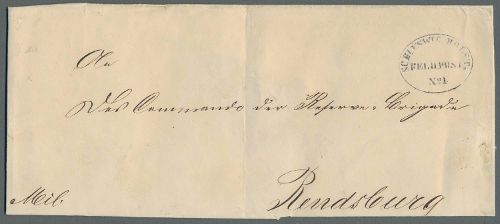 SCHLESWIG HOLST.
FELDPOST
No 1
An
Das Commando der Reserve-Brigade
Rendsburg
Mil.